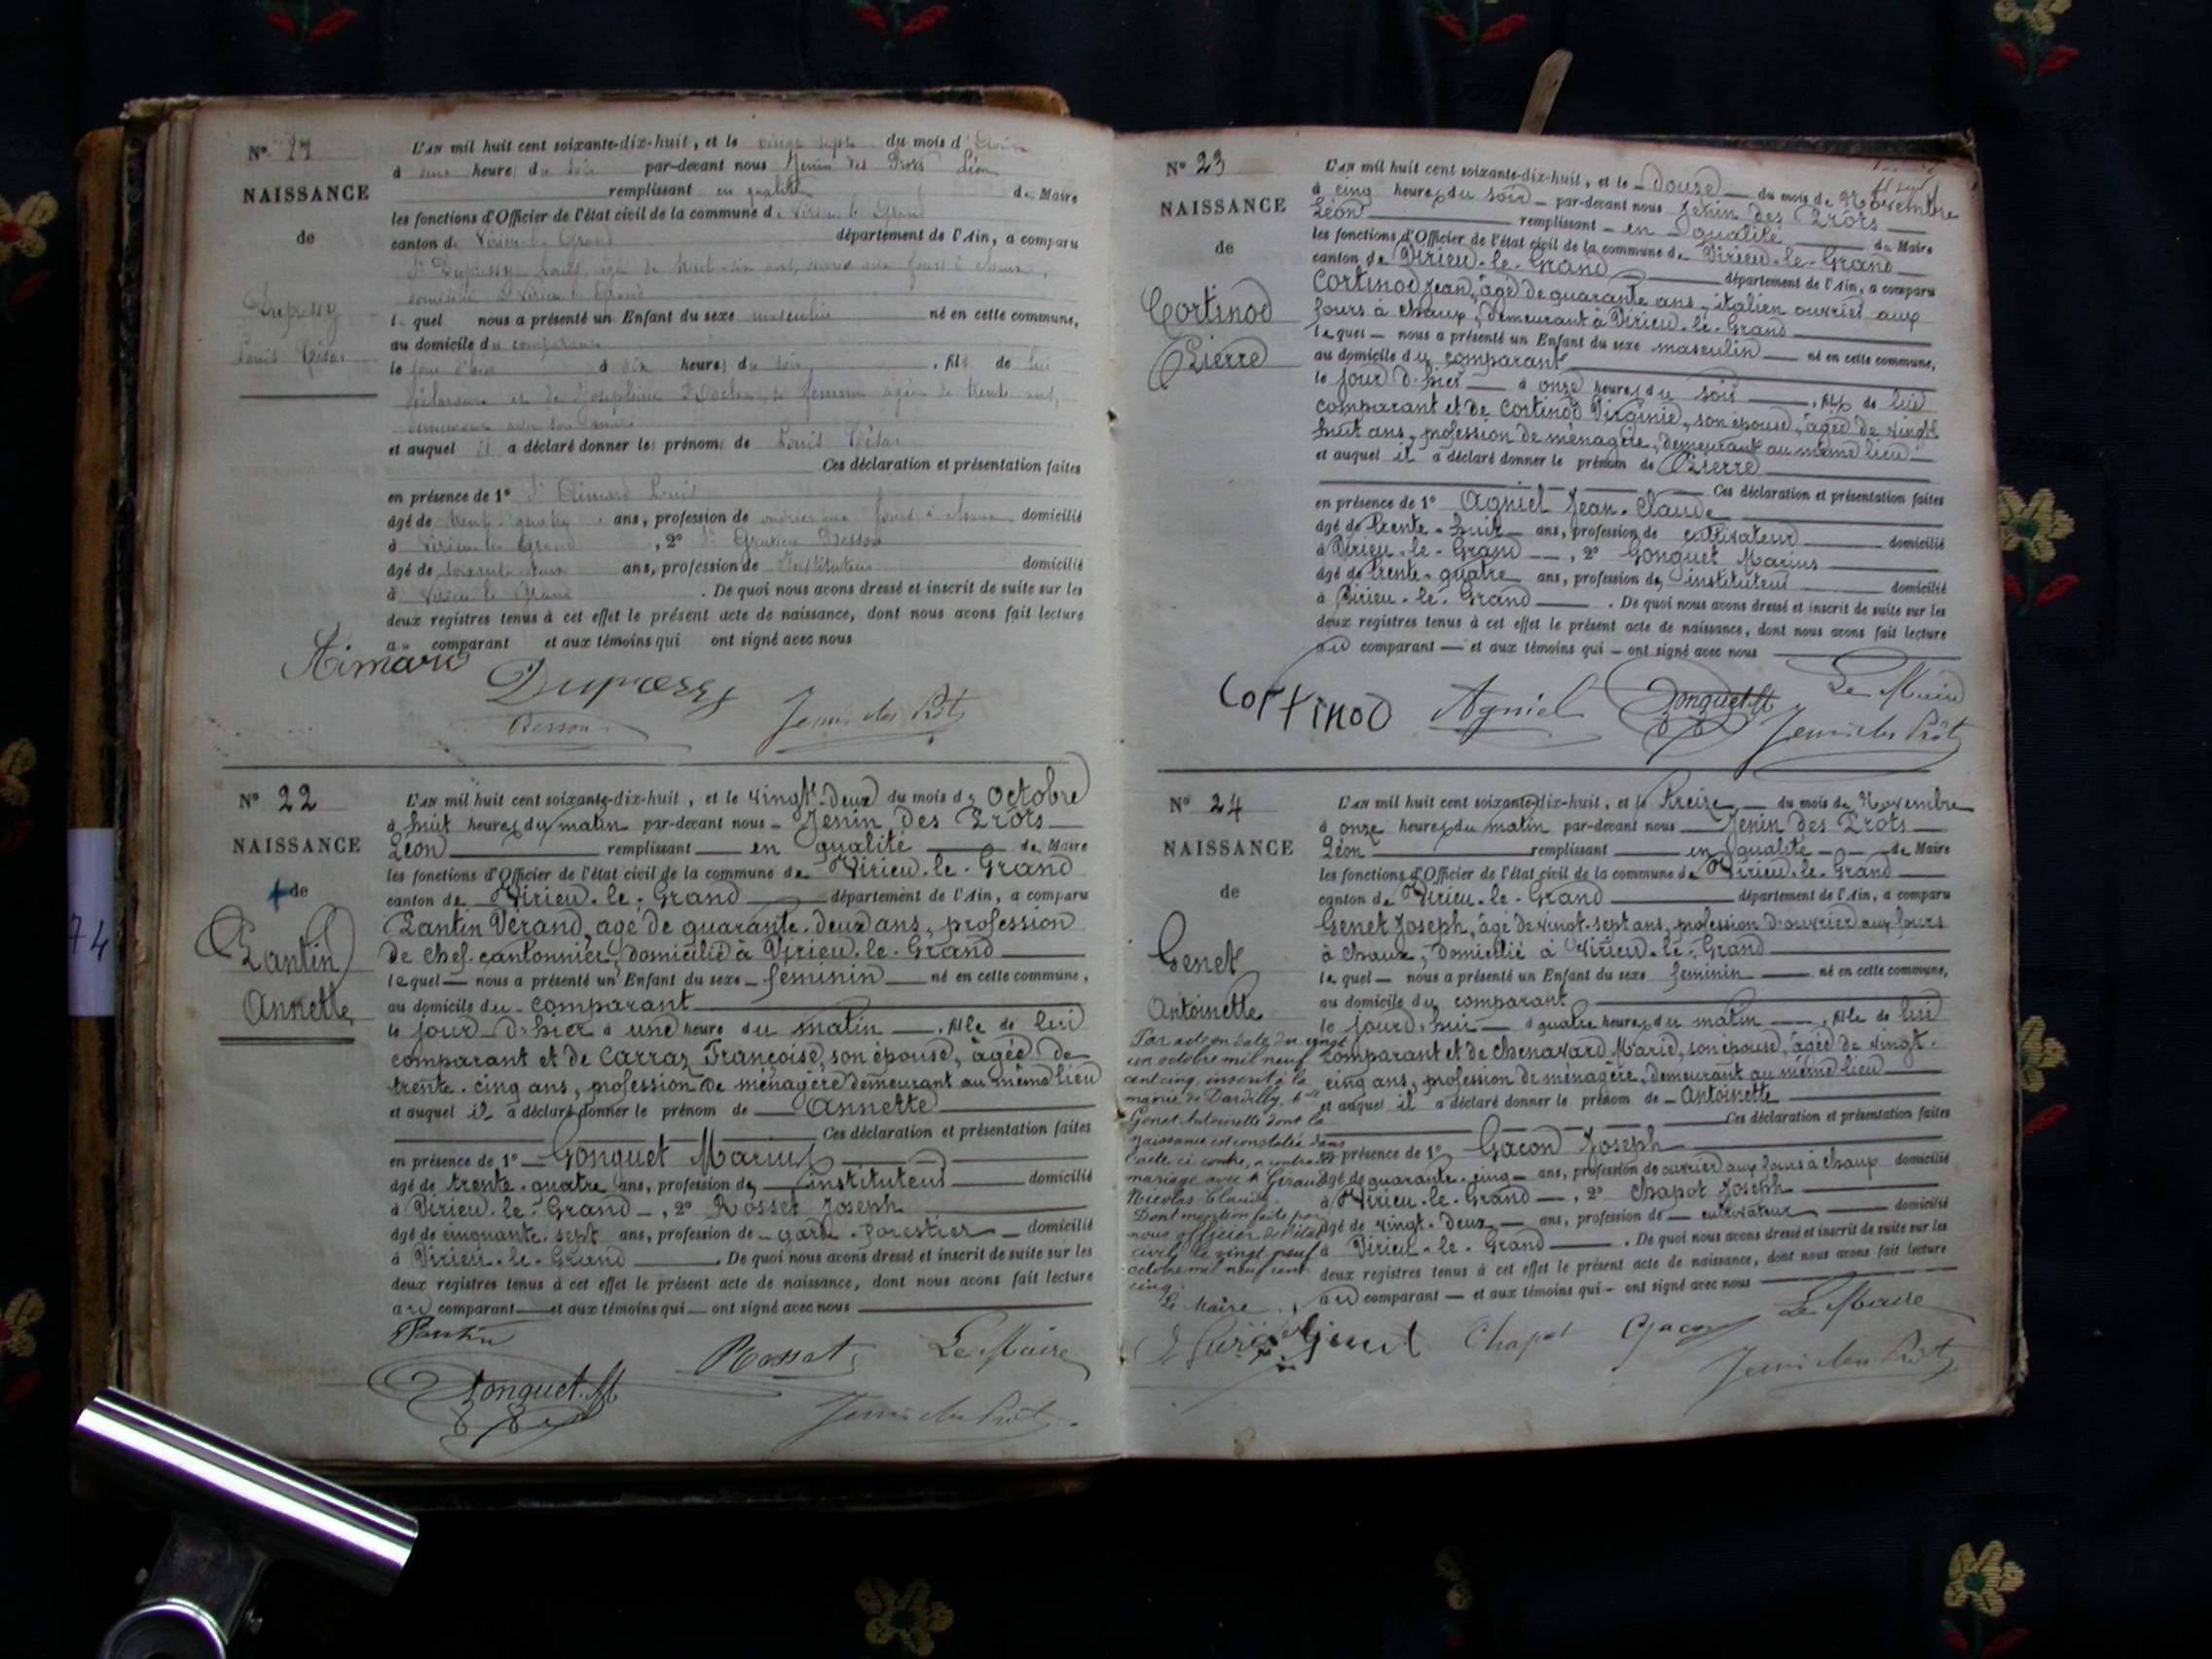 N° 21
NAISSANCE
de
Dupessy
Louis César
L'AN mil huit cent soixante-dix-huit, et le vingt sept du mois d'
à deux heures du soir par-devant nous Jenin des Prots Léon
remplissant en qualité de Maire
les fonctions d'Officier de l'état civil de la commune de Virieu le Grand
canton de Virieu le Grand département de l'Ain, a comparu
Sr Dupessy Louis, âgé de ans, aux fours à chaux,
domicilié à Virieu le Grand
lequel nous a présenté un Enfant du sexe masculin né en cette commune,
au domicile du comparant
le jour d'hier à dix heures du soir, fils de lui
déclarant et de Joséphine sa femme âgée de trente ans,
demeurant avec son mari
et auquel il a déclaré donner les prénoms de Louis César
Ces déclaration et présentation faites
en présence de 1° Sr Aimard Louis
âgé de trente quatre ans, profession de ouvrier aux fours à chaux domicilié
à Virieu le Grand, 2° Sr Besson
âgé de soixante ans, profession de Instituteur domicilié
à Virieu le Grand. De quoi nous avons dressé et inscrit de suite sur les
deux registres tenus à cet effet le présent acte de naissance, dont nous avons fait lecture
au comparant et aux témoins qui ont signé avec nous
Aimard Dupessy
Besson Jenin des Prots
N° 22
NAISSANCE
de
Pantin
Annette
L'AN mil huit cent soixante-dix-huit, et le vingt-deux du mois de Octobre
à huit heures du matin par-devant nous Jenin des Prots
Léon remplissant en qualité de Maire
les fonctions d'Officier de l'état civil de la commune de Virieu-le-Grand
canton de Virieu-le-Grand département de l'Ain, a comparu
Pantin Vérand, agé de quarante-deux ans, profession
de chef-cantonnier, domicilié à Virieu-le-Grand
lequel nous a présenté un Enfant du sexe feminin né en cette commune,
au domicile du comparant
le jour d'hier à une heure du matin, fille de lui
comparant et de Carraz Françoise, son épouse, âgée de
trente-cinq ans, profession de ménagère demeurant au même lieu
et auquel il a déclaré donner le prénom de Annette
Ces déclaration et présentation faites
en présence de 1° Gonguet Marius
âgé de trente-quatre ans, profession de instituteur domicilié
à Virieu-le-Grand, 2° Rosset Joseph
âgé de cinquante-sept ans, profession de garde-forestier domicilié
à Virieu-le-Grand. De quoi nous avons dressé et inscrit de suite sur les
deux registres tenus à cet effet le présent acte de naissance, dont nous avons fait lecture
au comparant et aux témoins qui ont signé avec nous
Pantin
Gonguet M Rosset Le Maire
Jenin des Prots
74
N° 23
NAISSANCE
de
Cortinod
Pierre
L'AN mil huit cent soixante-dix-huit, et le douze du mois de Novembre
à cinq heures du soir par-devant nous Jenin des Prots
Léon remplissant en qualité de Maire
les fonctions d'Officier de l'état civil de la commune de Virieu-le-Grand
canton de Virieu-le-Grand département de l'Ain, a comparu
Cortinod Jean, âgé de quarante ans, italien ouvrier aux
fours à chaux, demeurant à Virieu-le-Grand
lequel nous a présenté un Enfant du sexe masculin né en cette commune,
au domicile du comparant
le jour d'hier à onze heures du soir, fils de lui
comparant et de Cortinod Virginie, son épouse, âgée de vingt
huit ans, profession de ménagère, demeurant au même lieu
et auquel il a déclaré donner le prénom de Pierre
Ces déclaration et présentation faites
en présence de 1° Agniel Jean-Claude
âgé de trente-huit ans, profession de cultivateur domicilié
à Virieu-le-Grand, 2° Gonguet Marius
âgé de trente-quatre ans, profession de instituteur domicilié
à Virieu-le-Grand. De quoi nous avons dressé et inscrit de suite sur les
deux registres tenus à cet effet le présent acte de naissance, dont nous avons fait lecture
au comparant et aux témoins qui ont signé avec nous
Cortinod Agniel Gonguet M Le Maire
Jenin des Prots
N° 24
NAISSANCE
de
Genet
Antoinette
Par acte en date du vingt
un octobre mil neuf
cent cinq, inscrit à la
mairie de Dardilly, lle
Genet Antoinette dont la
naissance est constatée dans
l'acte ci-contre, a contracté
mariage avec Mr Giraud
Nicolas Claude.
Dont mention faite par
nous officier de l'état
civil le vingt neuf
octobre mil neuf cent
cinq.
Le Maire
L'AN mil huit cent soixante-dix-huit, et le treize du mois de Novembre
à onze heures du matin par-devant nous Jenin des Prots
Léon remplissant en qualité de Maire
les fonctions d'Officier de l'état civil de la commune de Virieu-le-Grand
canton de Virieu-le-Grand département de l'Ain, a comparu
Genet Joseph, âgé de vingt-sept ans, profession d'ouvrier aux fours
à chaux, domicilié à Virieu-le-Grand
lequel nous a présenté un Enfant du sexe feminin né en cette commune,
au domicile du comparant
le jourd'hui à quatre heures du matin, fille de lui
comparant et de Chenavard Marie, son épouse, âgée de vingt-
cinq ans, profession de ménagère, demeurant au même lieu
et auquel il a déclaré donner le prénom de Antoinette
Ces déclaration et présentation faites
en présence de 1° Gacon Joseph
âgé de quarante-cinq ans, profession de ouvrier aux fours à chaux domicilié
à Virieu-le-Grand, 2° Chapot Joseph
âgé de vingt-deux ans, profession de cultivateur domicilié
à Virieu-le-Grand. De quoi nous avons dressé et inscrit de suite sur les
deux registres tenus à cet effet le présent acte de naissance, dont nous avons fait lecture
au comparant et aux témoins qui ont signé avec nous
Genet Chapot Gacon Le Maire
Jenin des Prots